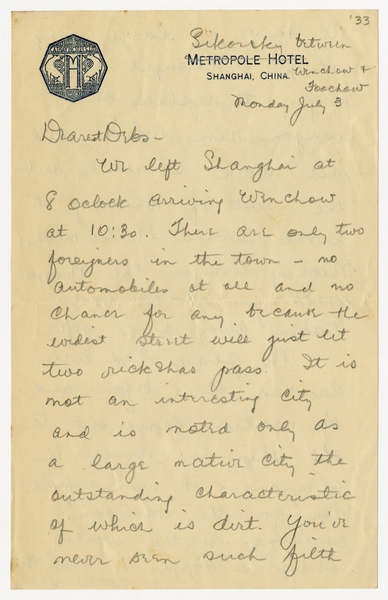 '33
Sikorsky between
METROPOLE HOTEL
SHANGHAI, CHINA.
Wenchow &
Foochow
Monday July 3
Dearest Debs-
We left Shanghai at
8 oclock arriving Wenchow
at 10:30. There are only two
foreigners in the town - no
automobiles at all and no
chance for any because the
widest street will just let
two rickshas pass. It is
not an interesting city
and is noted only as
a large native city the
outstanding characteristic
of which is dirt. You've
never seen such filth